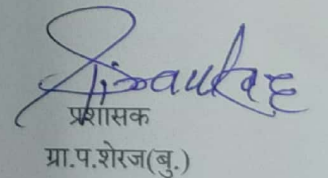 प्रशासक
ग्रा.प.शेरज(बु.)